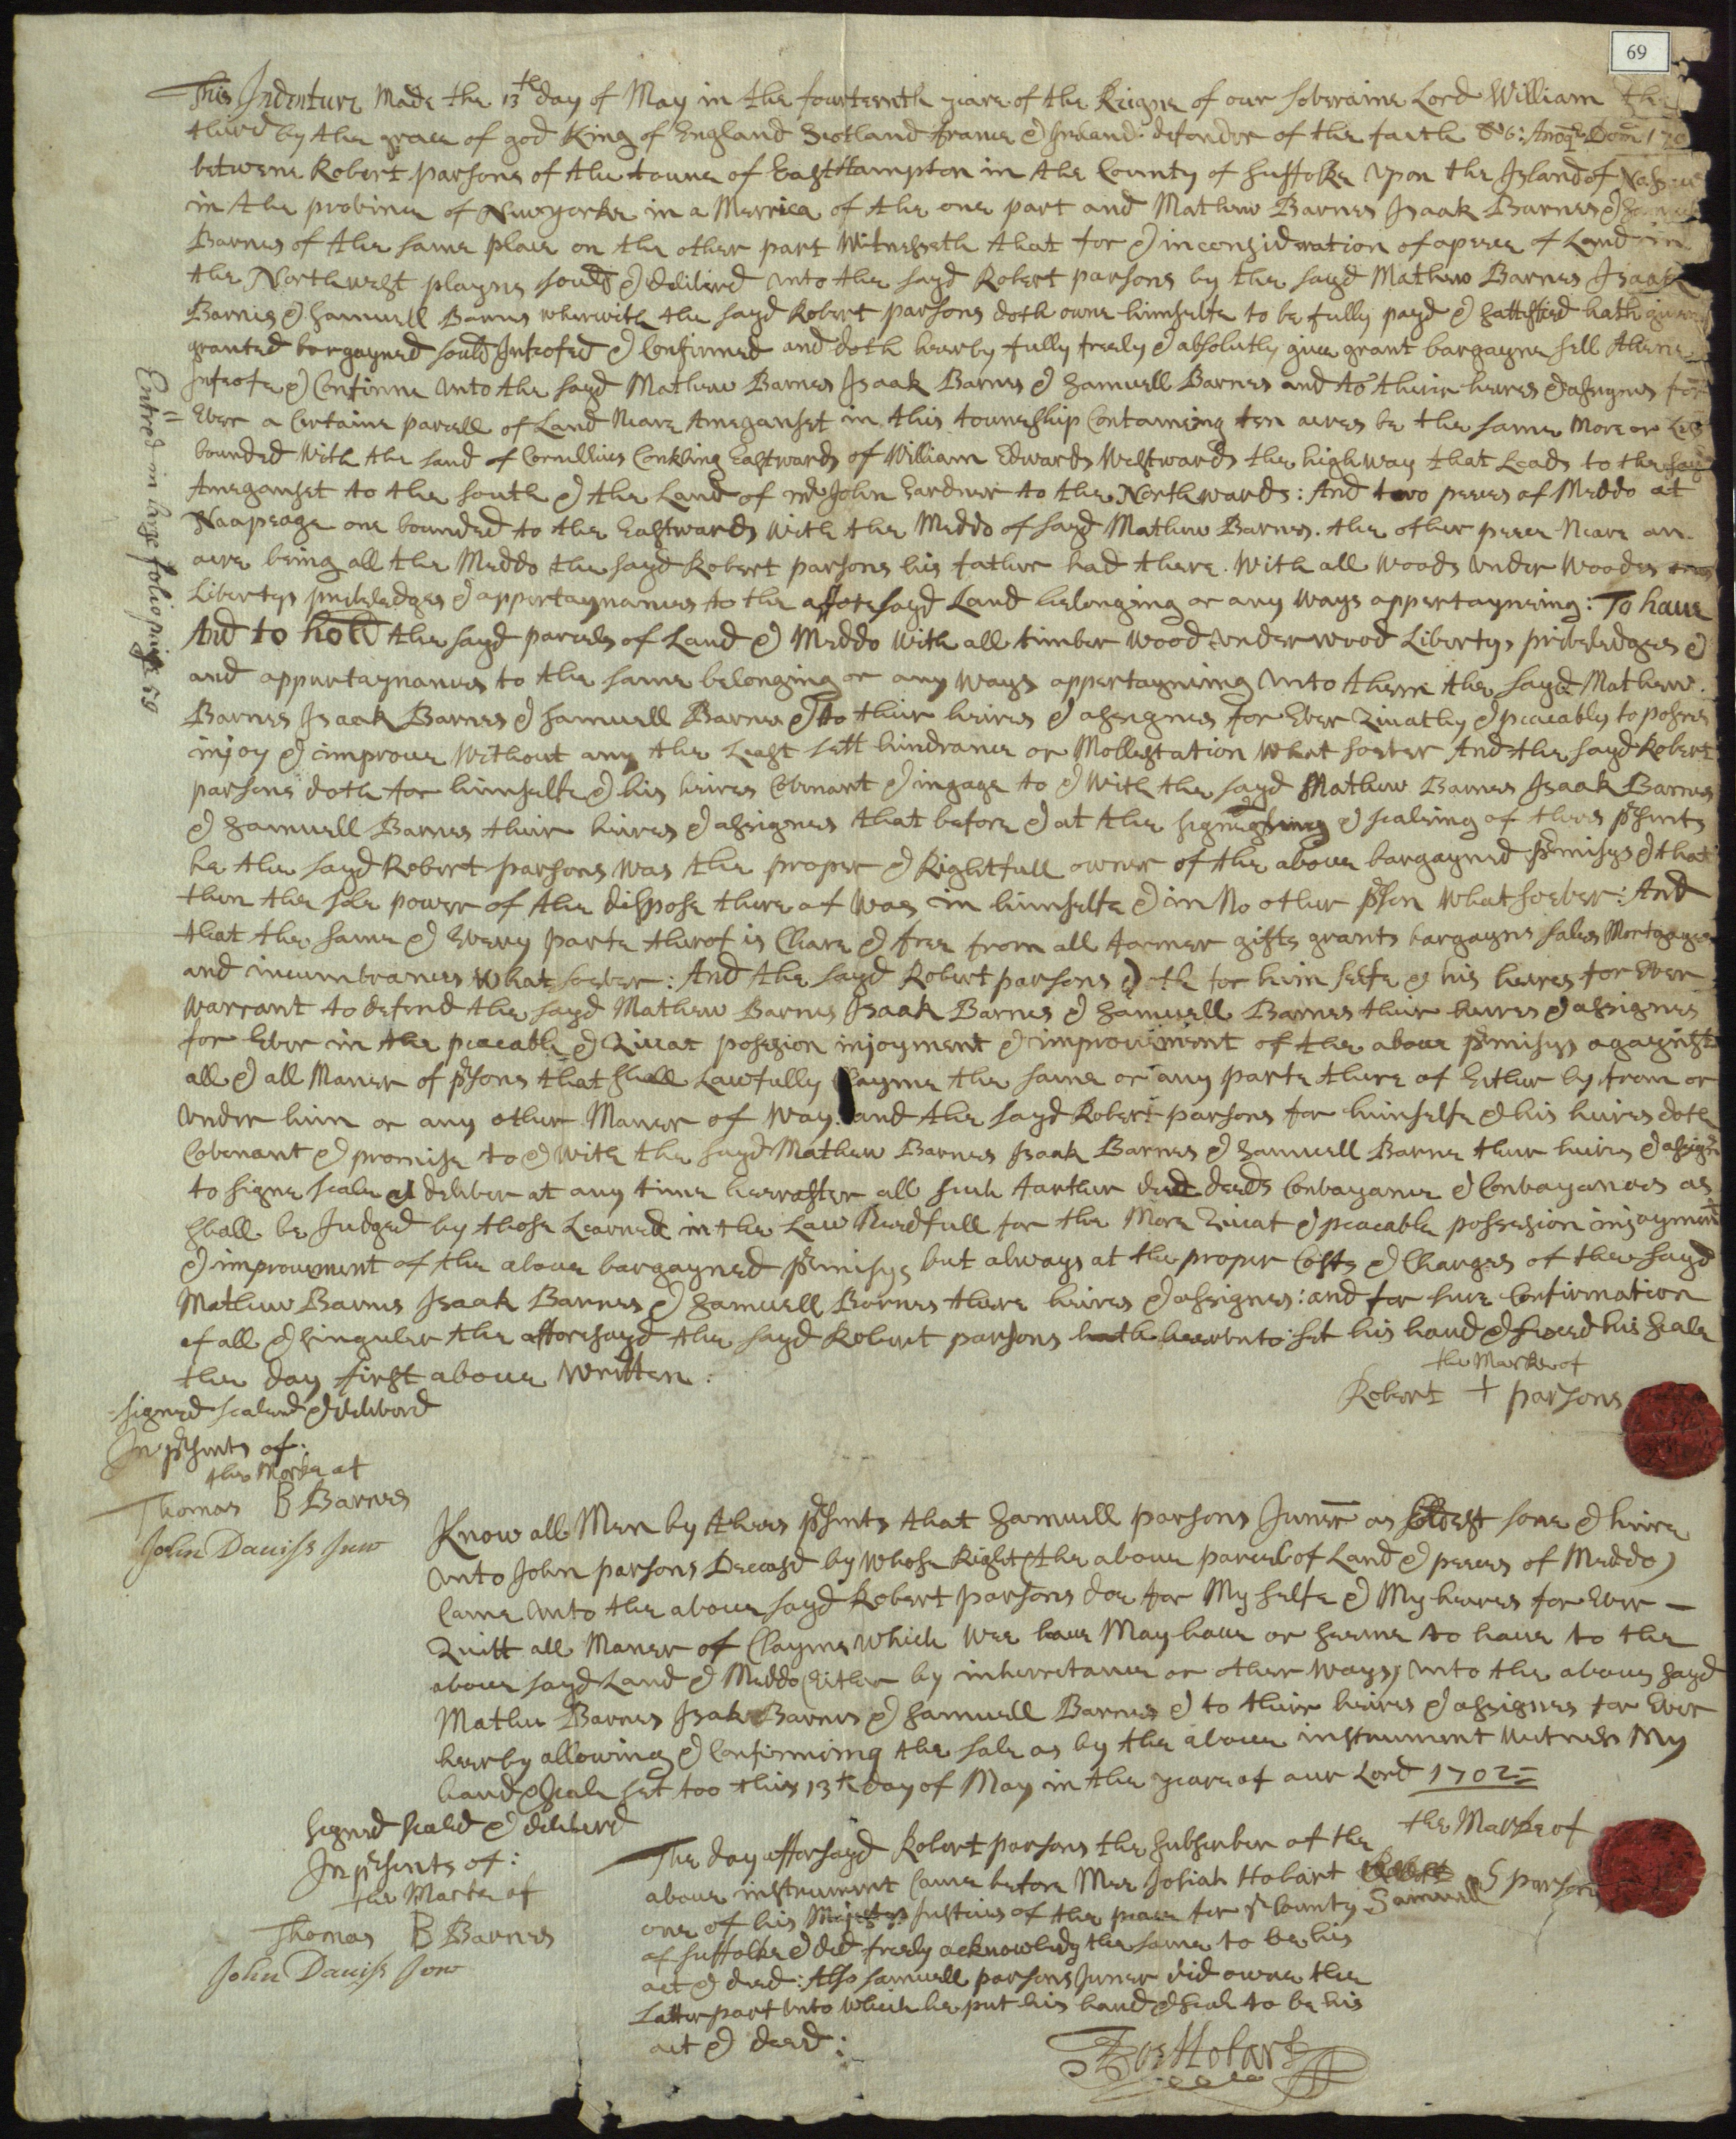 69
This Indenture Made the 13th day of May in the fourteenth yeare of the Reigne of our soveraine Lord William the
third by the grace of god King of England Scotland france & Ireland defender of the faith &c: Anoqe Dom 170
betwene Robert parsons of the towne of EastHampton in the County of Suffolke upon the Island of Nassaw
in the province of Newyorke in a Merrica of the one part and Mathew Barnes Isaak Barnes & Samuell
Barnes of the same place on the other part Witnesseth that for & inconsideration of a peece of Land in
the Northwest playne sould & delivred unto the sayd Robert parsons by the sayd Mathew Barnes Isaak
Barnes & Samuell Barnes wherwith the sayd Robert parsons doth owne himselfe to be fully payd & sattisfied hath given
granted bargayned sould Infeofed & Confirmed and doth hearby fully freely & absolutly give grant bargayne sell Aliene
Infeofe & Confirme unto the sayd Mathew Barnes Isaak Barnes & Samuell Barnes and to their heires & assignes for
Ever a Certaine parcell of Land Neare Ameganset in this towneship Contameing ten acres be the same More or Less
bounded With the land of Cornellius Conkling Eastwards of William Edwards Westwards the high way that Leads to the sayd
Ameganset to the south & the Land of mr John Gardner to the Northwards: And two peeces of Meddo at
Naapeage one bounded to the Eastwards With the Meddo of sayd Mathew Barnes. the other peece Neare an
acre being all the Meddo the sayd Robert parsons his father had there. With all Woods under Woodes
Libertys priveledges & appertaynances to the afforesayd Land belonging or any Ways appertayneing: To have
And to hold the sayd parcels of Land & Meddo With all timber Wood underwood Libertys priveledges &
and appurtaynances to the same belonging or any Ways appertayning unto them the sayd Mathew
Barnes Isaak Barnes & Samuell Barnes & to their heires & assignes for Ever Quiatly & peaceably to posses
injoy & improve Without any the Least lett hindrance or Mollestation What soever And the sayd Robert
parsons doth for himselfe & his heires Covenant & ingage to & With the sayd Mathew Barnes Isaak Barnes
& Samuell Barnes their heires & assignes that before & at the signeing & sealeing of thees psents
he the sayd Robert parsons Was the proper & Rightfull owner of the above bargayned pmisys & that
then the sole power of the dispose there of Was in himselfe & in No other pson Whatsoever: And
that the same & Every parte therof is Cleare & free from all former gifts grants bargayns sales Mortgages
and incumbrances What soever: And the sayd Robert parsons doth for him selfe & his heires for Ever
Warrant to defend the sayd Mathew Barnes Isaak Barnes & Samuell Barnes their heires & assignes
for Ever in the peaceable & Quiat posesion injoyment & improvement of the above pmisys agaynst
all & all Maner of psons that shall Lawfully Clayme the same or any parte there of Either by from or
under him or any other Maner of Way and the sayd Robert parsons for himselfe & his heires doth
Covenant & promise to & With the sayd Mathew Barnes Isaak Barnes & Samuell Barne their heires & assigns
to signe seale & deliver at any time hereafter all such farther deed deeds Convayance & Convayances as
shall be Judged by those Learned in the Law Needfull for the More Quiat & peaceable possesion injoyment
& improvement of the above bargayned pmisys but always at the proper Costs & Charges of the sayd
Mathew Barnes Isaak Barnes & Samuell Barnes there heires & assignes: and for sure Confirmation
of all & singuler the afforesayd the sayd Robert parsons hath heerunto set his hand & fixed his seale
the day first above Written.
the Marke of
Robert + parsons
signed sealed & delivred
In psents of:
the Marke of
Thomas B Barnes
John Daviss Juw
Know all Men by thees psents that Samuell parsons Juner as Eldest sone & heire
unto John parsons Deceasd by Whose Right (the above parcel of Land & peeces of Meddo)
Came unto the above sayd Robert parsons doe for My selfe & My heires for Ever —
Quitt all Maner of Clayme Which Wee have May have or seeme to have to the
above sayd Land & Meddo (Either by inherretance or other Ways) unto the above sayd
Mathew Barnes Isak Barnes & Samuell Barnes & to their heires & assignes for Ever
heerby allowing & Confirmeing the sale as by the above instrument Witness My
hand & seale set too this 13th day of May in the yeare of our Lord 1702
the Marke of
Samuell S parsons
signed sealed & delivered
In psents of:
the Marke of
Thomas B Barnes
John Daviss Juw
The day afforsayd Robert parsons the subscriber of the
above instrument Came before Mee Josiah Hobart
one of his Majestys Justices of the peace for ye County
of Suffolke & did freely acknowledg the same to be his
act & deed: Also Samuell parsons Juner did owne the
Latter part unto Which he put his hand & seale to be his
act & deed:
Jos Hobart
Entred in large folio page 59